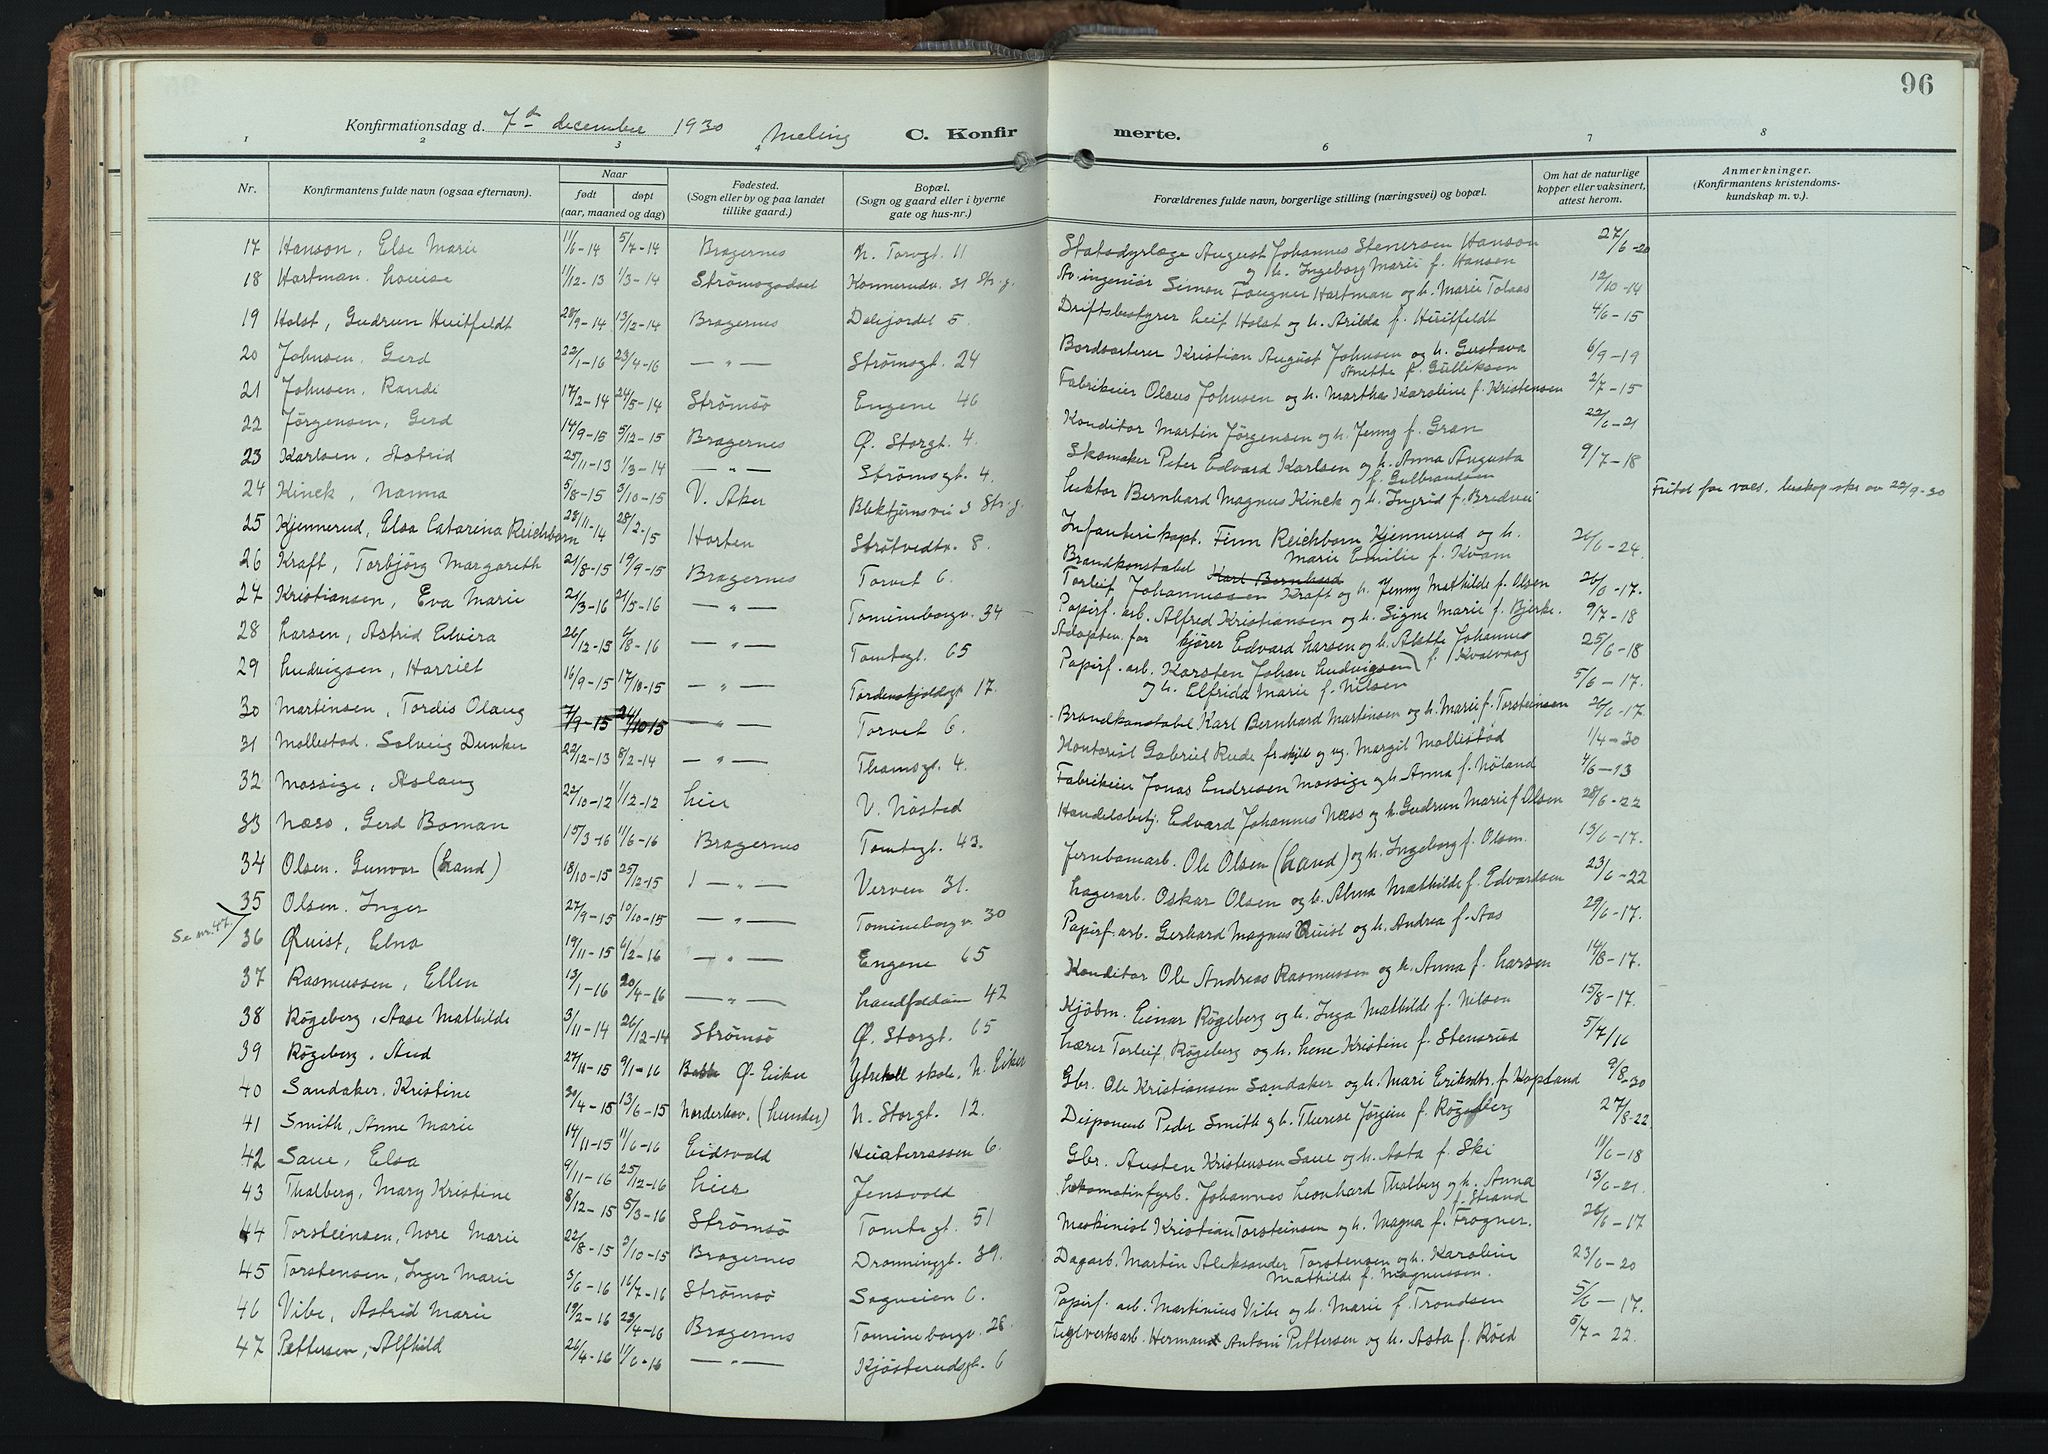 96
Konfirmationsdag d. 7de december 1930 Meling C. Konfirmerte.
1 2 3 4 6 7 8
Nr. Konfirmantens fulde navn (ogsaa efternavn). Naar født døpt (aar, maaned og dag) Fødested. (Sogn eller by og paa landet tillike gaard.) Bopæl. (Sogn og gaard eller i byerne gate og hus-nr.) Forældrenes fulde navn, borgerlige stilling (næringsvei) og bopæl. Om hat de naturlige kopper eller vaksinert, attest herom. Anmerkninger. (Konfirmantens kristendomskundskap m. v.).
17 Hanson, Else Marie 11/6-14 5/7-14 Bragernes N. Torvgt. 11 Statsdyrlæge August Johannes Stenersen Hanson og h. Ingeborg Marie f. Hansen 27/6-20
18 Hartman. Louise 11/12-13 1/3-14 Strømsgodset Konnerudv. 31 Str.g. Av.ingeniør Simon Fougner Hartman og h. Marie Tolaas 12/10-14
19 Holst, Gudrun Huitfeldt 28/9-14 13/12-14 Bragernes Dalijordet 5. Driftsbestyrer Leif Holst og h. Arilda f. Huitfeldt 4/6-15
20 Johnsen, Gerd 22/1-16 23/4-16 — " — Strømsgt. 24 Bordsorterer Kristian August Johnsen og h. Gustava Anette f. Gulliksen 6/9-19
21 Johnsen, Randi 17/2-14 24/5-14 Strømsø Engene 46 Fabrikeier Olaus Johnsen og h. Martha Karoline f. Kristensen 2/7-15
22 Jørgensen, Gerd 14/9-15 5/12-15 Bragernes Ø. Storgt. 4. Konditor Martin Jørgensen og h. Jenny f. Gran 22/6-21
23 Karlsen, Astrid 25/11-13 1/3-14 — " — Strømsgt. 4. Skomaker Peter Edvard Karlsen og h. Anna Augusta f. Gulbrandsen 9/7-18
24 Kinck, Nanna 5/8-15 3/10-15 V. Aker Blektjernsvei 3 Str.g. Lektor Bernhard Magnus Kinck og h. Ingrid f. Bredvei Fritat for vacs.
25 Kjennerud, Elsa Catarina Reichborn 28/11-14 28/2-15 Horten Strøtvedtv. 8. Infanterikapt. Finn Reichborn Kjennerud og h. Marie Emilie f. Kvam 26/6-24.
26 Kraft, Torbjörg Margareth 21/8-15 19/9-15 Bragernes Torvet 6. Brandkonstabel Karl Bernhard Torleif Johannessen Kraft og h. Jenny Mathilde f. Olsen 26/6-17.
27 Kristiansen, Eva Marie 21/3-16 21/5-16 — " — Tomineborgv. 34 Papirf. arb. Alfred Kristiansen og h. Signe Marie f. Bjerke. 9/7-18
28 Larsen, Astrid Elvira 26/12-15 6/8-16 — " — Tomtegt. 65 Adoptev. for kjører Edvard Larsen og h. Alette Johannes f. Kvalvaag 25/6-18
29 Ludvigsen, Harriet 16/9-15 17/10-15 — " — Tordenskjoldsgt 17. Papirf. arb. Karsten Johan Ludvigsen og h. Elfrida Marie f. Nilsen 5/6-17.
30 Martinsen, Tordis Olaug 7/9-15 24/10-15 — " — Torvet 6. Brandkonstabel Karl Bernhard Martinsen og h. Marie f. Torsteinsen 26/6-17.
31 Mollestad. Solveig Dunker 22/12-13 8/2-14 — " — Thamsgt. 4. Kontorist Gabriel Rude fr.skilt og ug. Margit Mollestad 1/4-30
32 Mossige, Aslaug 22/10-12 1/12-12 Lier V. Nøsted Fabrikeier Jonas Endresen Mossige og h. Anna f. Nøland 4/6-13
33 Næss, Gerd Boman 15/3-16 11/6-16 Bragernes Tomtegt. 43. Handelsbetj. Edvard Johannes Næss og h. Gudrun Marie f. Olsen 28/6-22
34 Olsen. Gunvor (Land) 18/10-15 25/12-15 — " — Verven 31. Jernbanearb. Ole Olsen (Land) og h. Ingeborg f. Olsen. 13/6-17.
35 Olsen. Inger 27/9-15 10/10-15 — " — Tomineborgv. 30 Lagerarb. Oskar Olsen og h. Alma Mathilde f. Edvardsen 23/6-22
Se nr. 47
36 Qvist, Elna 19/11-15 6/2-16 — " — Engene 65 Papirf. arb. Gerhard Magnus Quist og h. Andrea f. Aas 29/6-17.
37 Rasmussen, Ellen 13/1-16 20/4-16 — " — Landfaldøien 42 Konditor Ole Andreas Rasmussen og h. Anna f. Larsen 14/8-17.
38 Røgeberg, Aase Mathilde 3/11-14 26/12-14 Strømsø Ø. Storgt. 65 Kjøbm. Einar Røgeberg og h. Inga Mathilde f. Nilsen 15/8-17.
39 Røgeberg. Aud 27/11-15 9/1-16 Ø. Eiker Ytrekoll skole. N. Eiker Lærer Torleif Røgeberg og h. Lene Kristine f. Stensrud 5/7/16
40 Sandaker. Kristine 30/4-15 13/6-15 Norderhov. (Lunder) N. Storgt. 12. Gbr. Ole Kristiansen Sandaker og h. Mari Eriksdtr. f. Kopland 9/8-30
41 Smith, Anne Marie 14/11-15 11/6-16 Eidsvold Heiaterrassen 6. Disponent Peder Smith og h. Therese Jørgine f. Røgeberg 27/8-22
42 Saue, Elsa 9/11-16 25/12-16 Lier Jensvold Gbr. Austen Kristensen Saue og h. Asta f. Ski 19/6-18
43 Thalberg, Mary Kristine 8/12-15 5/3-16 Strømsø Tomtegt. 51 Lokomotivfyrb. Johannes Leonhard Thalberg og h. Anna f. Strand 13/6-21.
44 Torsteinsen, Nore Marie 22/8-15 3/10-15 Bragernes Dronninggt. 39. Maskinist Kristian Torsteinsen og h. Magna f. Frogner. 26/6-17
45 Torstensen, Inger Marie 3/6-16 16/7-16 Strømsø Sagveien 6. Dagarb. Martin Aleksander Torstensen og h. Karoline Mathilde f. Magnussen. 23/6-20
46 Vibe, Astrid Marie 19/2-16 23/4-16 Bragernes Tomineborgv. 28. Papirf. arb. Martinius Vibe og h. Marie f. Trondsen 5/6-17.
47 Pettersen, Alfhild 26/4-16 11/6-16 — " — Kjøsterudgt. 6 Teglverksarb. Hermand Antoni Pettersen og h. Asta f. Røed 5/7-22.